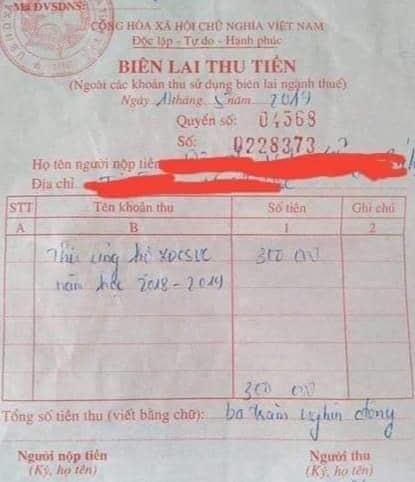 Mã ĐVSDNS:
CỘNG HÒA XÃ HỘI CHỦ NGHĨA VIỆT NAM
Độc lập - Tự do - Hành phúc
BIÊN LAI THU TIỀN
(Ngoài các khoản thu sử dụng biên lai ngành thuế)
Ngày tháng 5 năm 2019
Quyển số: 04568
Số: 0228373
Họ tên người nộp tiền
Địa chỉ
STT Tên khoản thu Số tiền Ghi chú
A B 1 2
Thu ủng hộ XDCSVC 300 000
năm học 2018-2019
300 000
Tổng số tiền thu (viết bằng chữ): ba trăm nghìn đồng
Người nộp tiền Người thu
(Ký, họ tên) (Ký, họ tên)